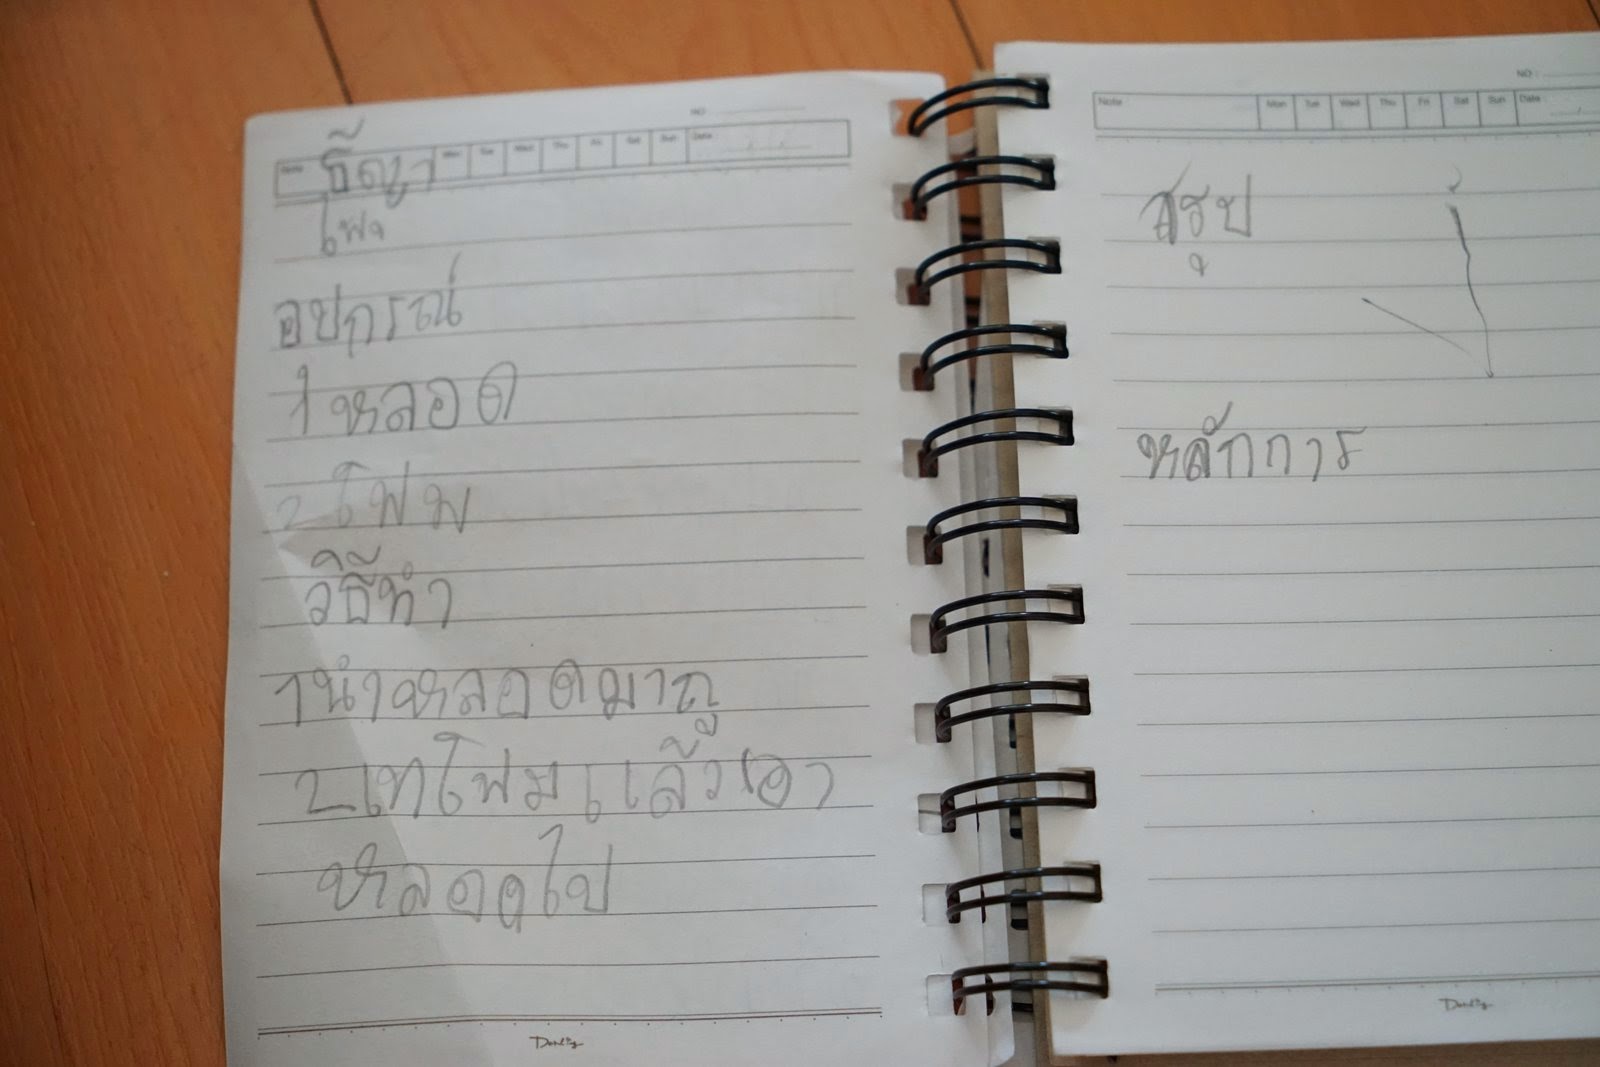 NO
Note ธีญา Mon Tue Wed Thu Fri Sat Sun Date
อุปกรณ์
1 หลอด
2 โฟม
วิธีทำ
1 นำหลอดมาถู
2 เทโฟมแล้วเอา
หลอดไป
NO
Note Mon Tue Wed Thu Fri Sat Sun Date
สรุป
หลักการ